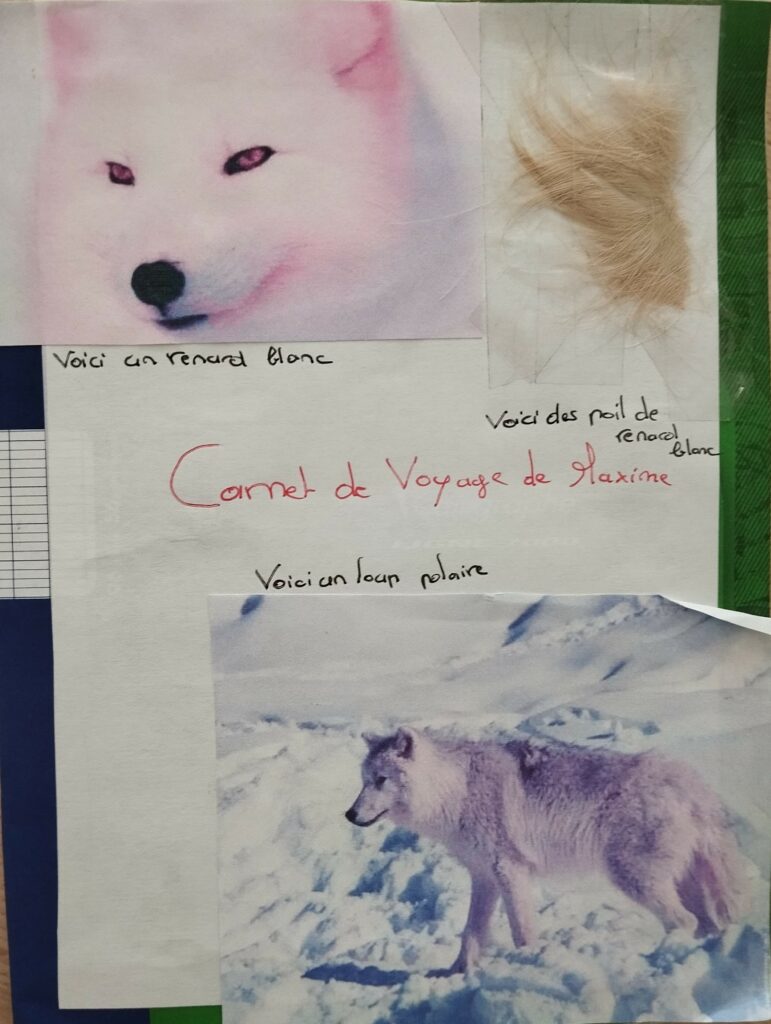 Voici un renard blanc
Voici des poil de
renard
blanc
Carnet de Voyage de Maxime
Voici un loup polaire